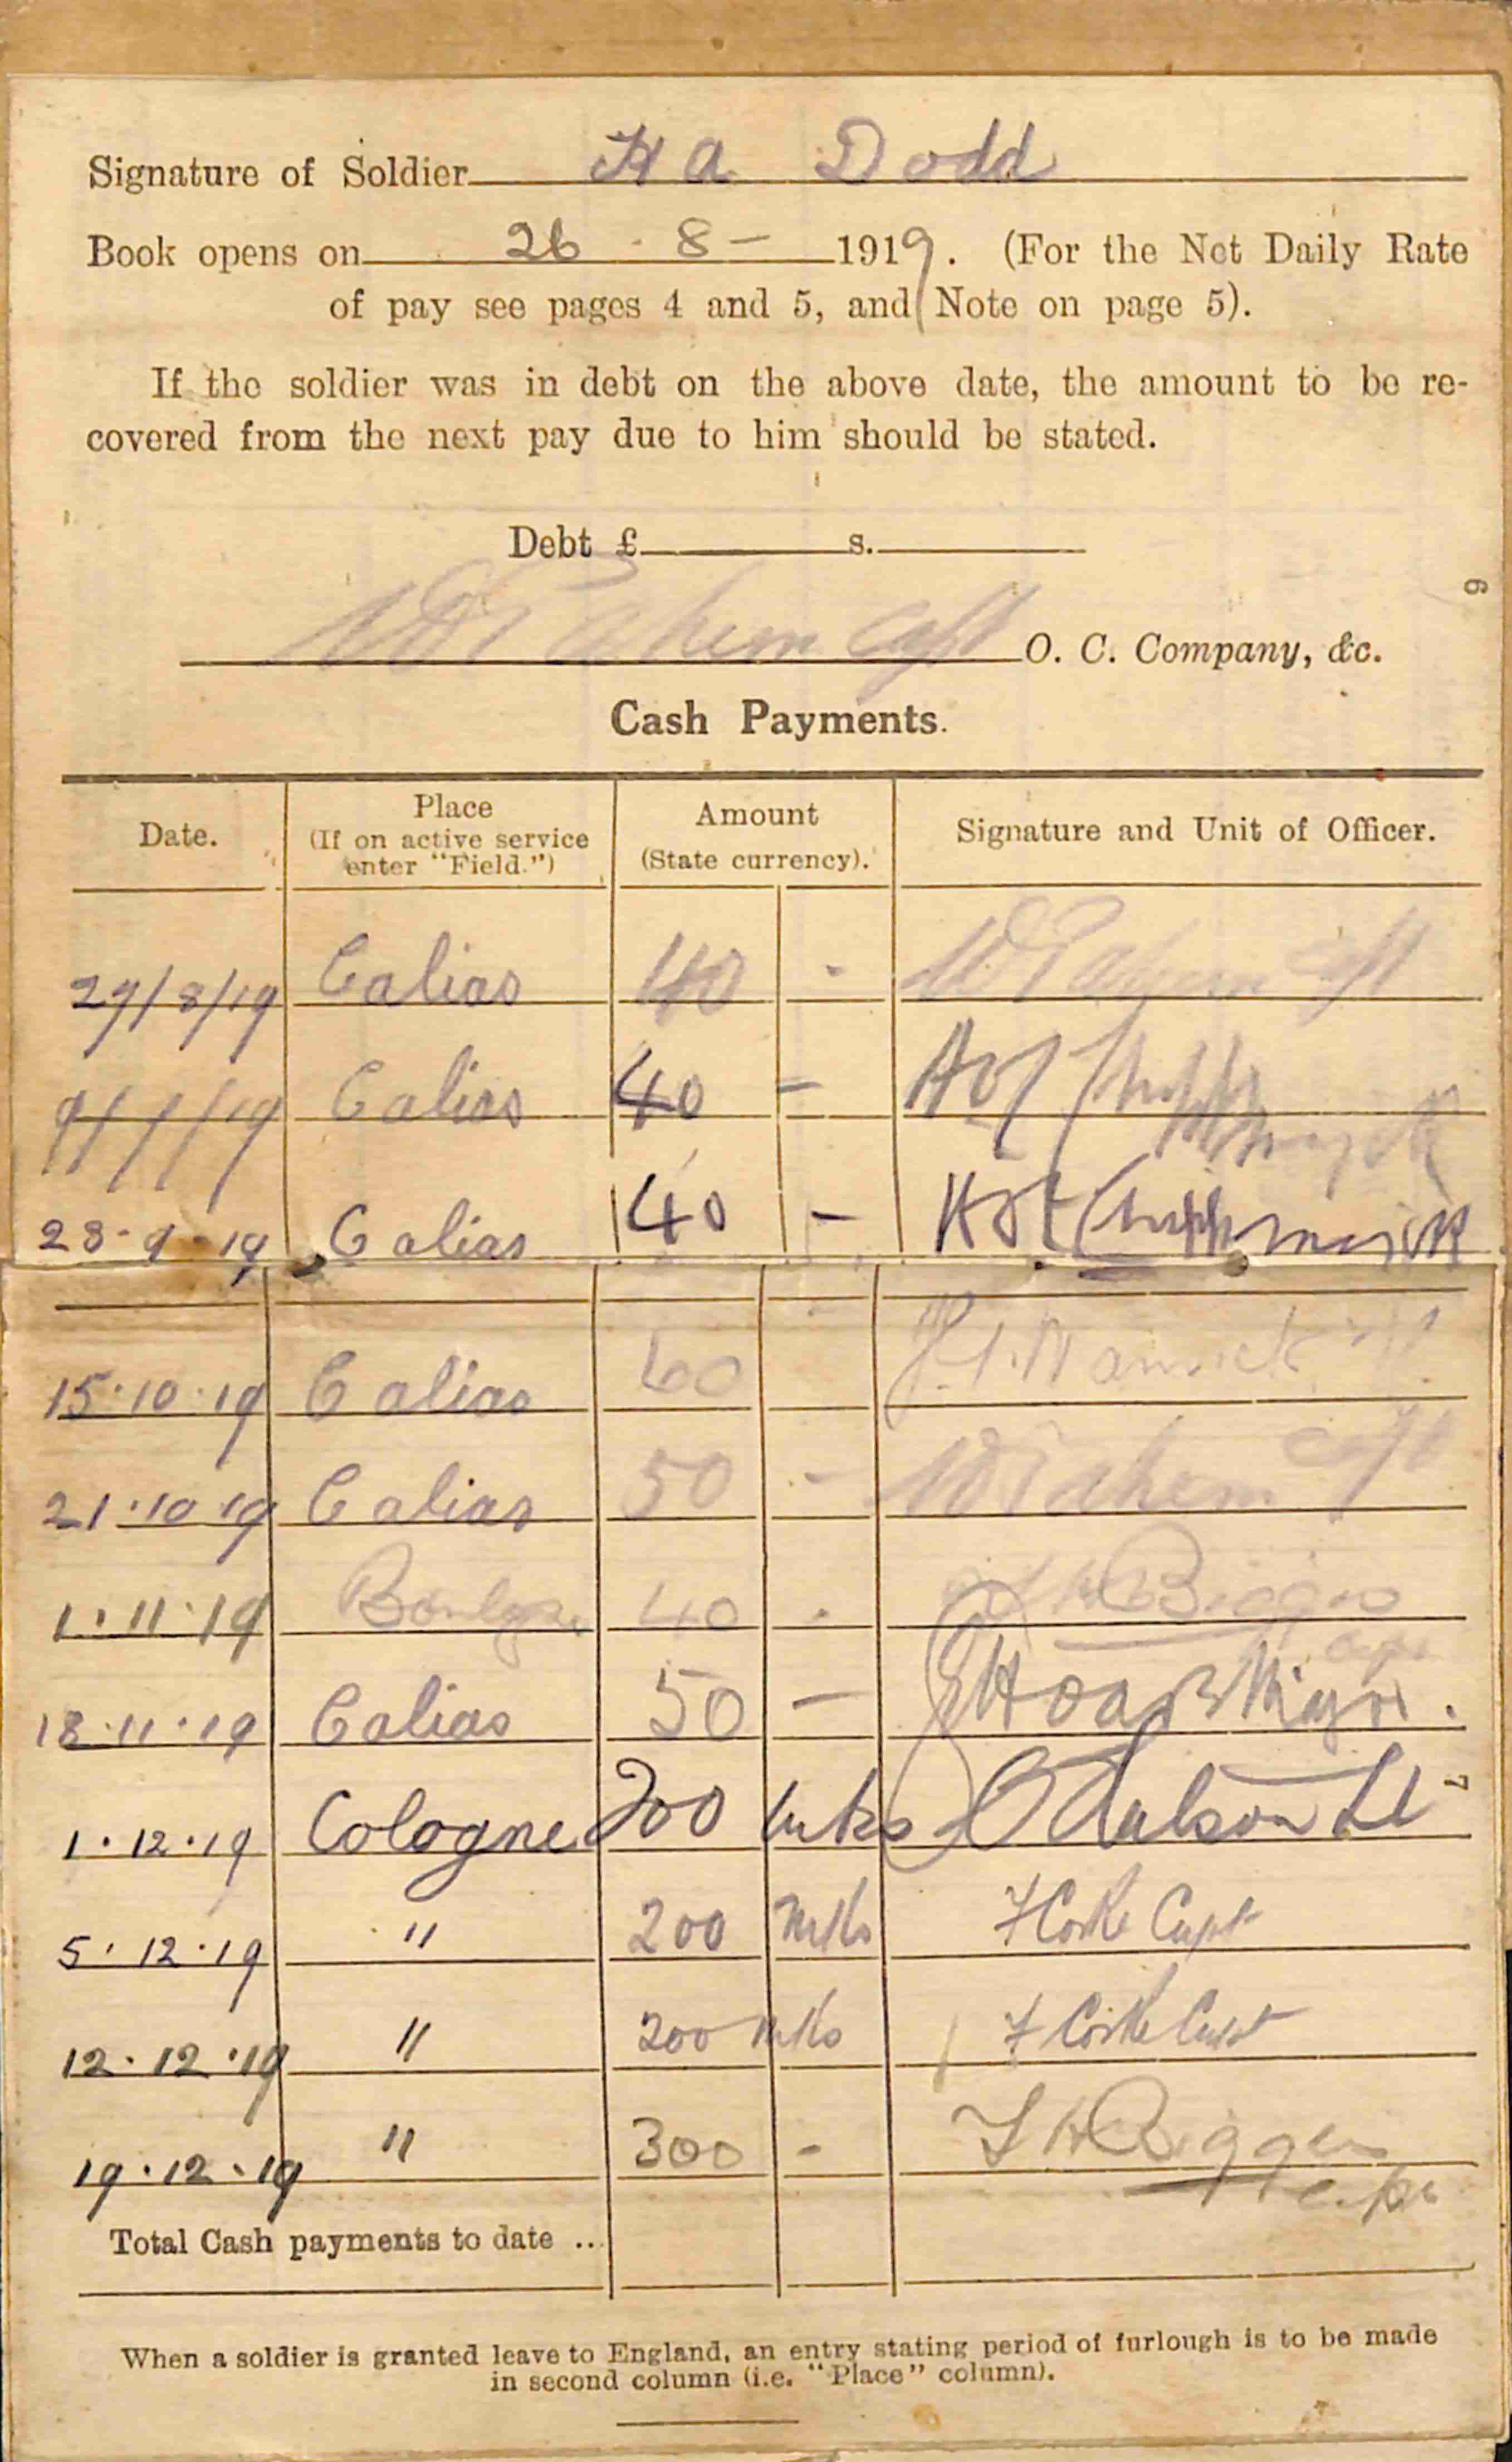 Signature of Soldier H A Dodd
Book opens on 26 - 8 - 1919. (For the Net Daily Rate
of pay see pages 4 and 5, and Note on page 5).
If the soldier was in debt on the above date, the amount to be re-
covered from the next pay due to him should be stated.
Debt £ s.
6
Capt O. C. Company, &c.
Cash Payments.
Date. Place (If on active service enter "Field.") Amount (State currency). Signature and Unit of Officer.
29/8/19 Calias 40 - Capt
Calias 40 -
23-9-19 Calias 40 -
15.10.19 Calias 60
21.10.19 Calias 50 - Capt
1.11.19 40 - Biggs
18.11.19 Calias 50 -
1.12.19 Cologne 200 mks Lt
7
5.12.19 " 200 mks Capt
12.12.19 " 200 mks Capt
19.12.19 " 300 -
Total Cash payments to date ...
When a soldier is granted leave to England, an entry stating period of furlough is to be made
in second column (i.e. "Place" column).